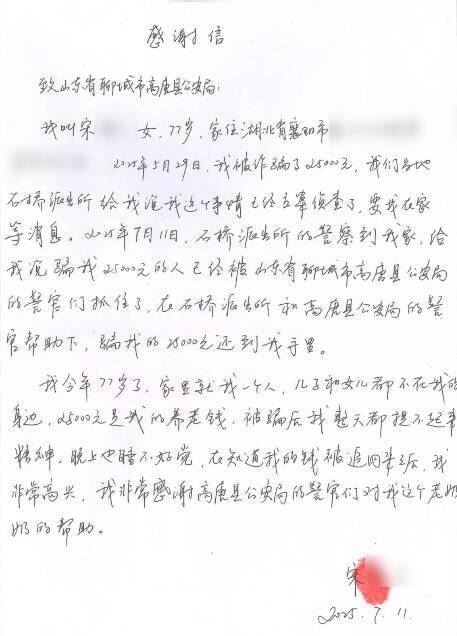 感谢信
致山东省聊城市高唐县公安局:
我叫宋 女,77岁,家住湖北省襄阳市
2025年5月29日,我被诈骗了25000元,我们当地
石桥派出所给我说我这个事情已经立案侦查了,要我在家
等消息。2025年7月11日,石桥派出所的警察到我家,给
我说骗我25000元的人已经被山东省聊城市高唐县公安局
的警官们抓住了,在石桥派出所和高唐县公安局的警
官帮助下,骗我的25000元还到我手里。
我今年77岁了,家里就我一个人,儿子和女儿都不在我的
身边,25000元是我的养老钱,被骗后我整天都提不起来
精神,晚上也睡不好觉,在知道我的钱被追回来之后,我
非常高兴,我非常感谢高唐县公安局的警官们对我这个老奶
奶的帮助。
宋
2025.7.11